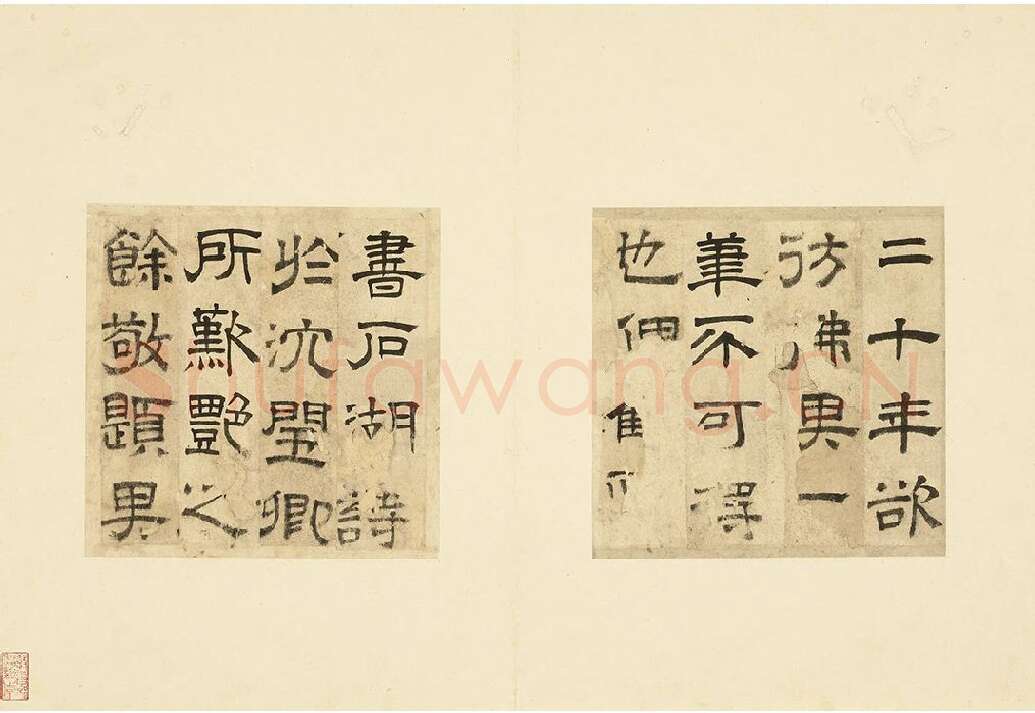 二十年欲
彷彿其一
筆不可得
也佃
書石湖詩
於沈閨卿
所歎豔之
餘敬題其
shufawang.CN